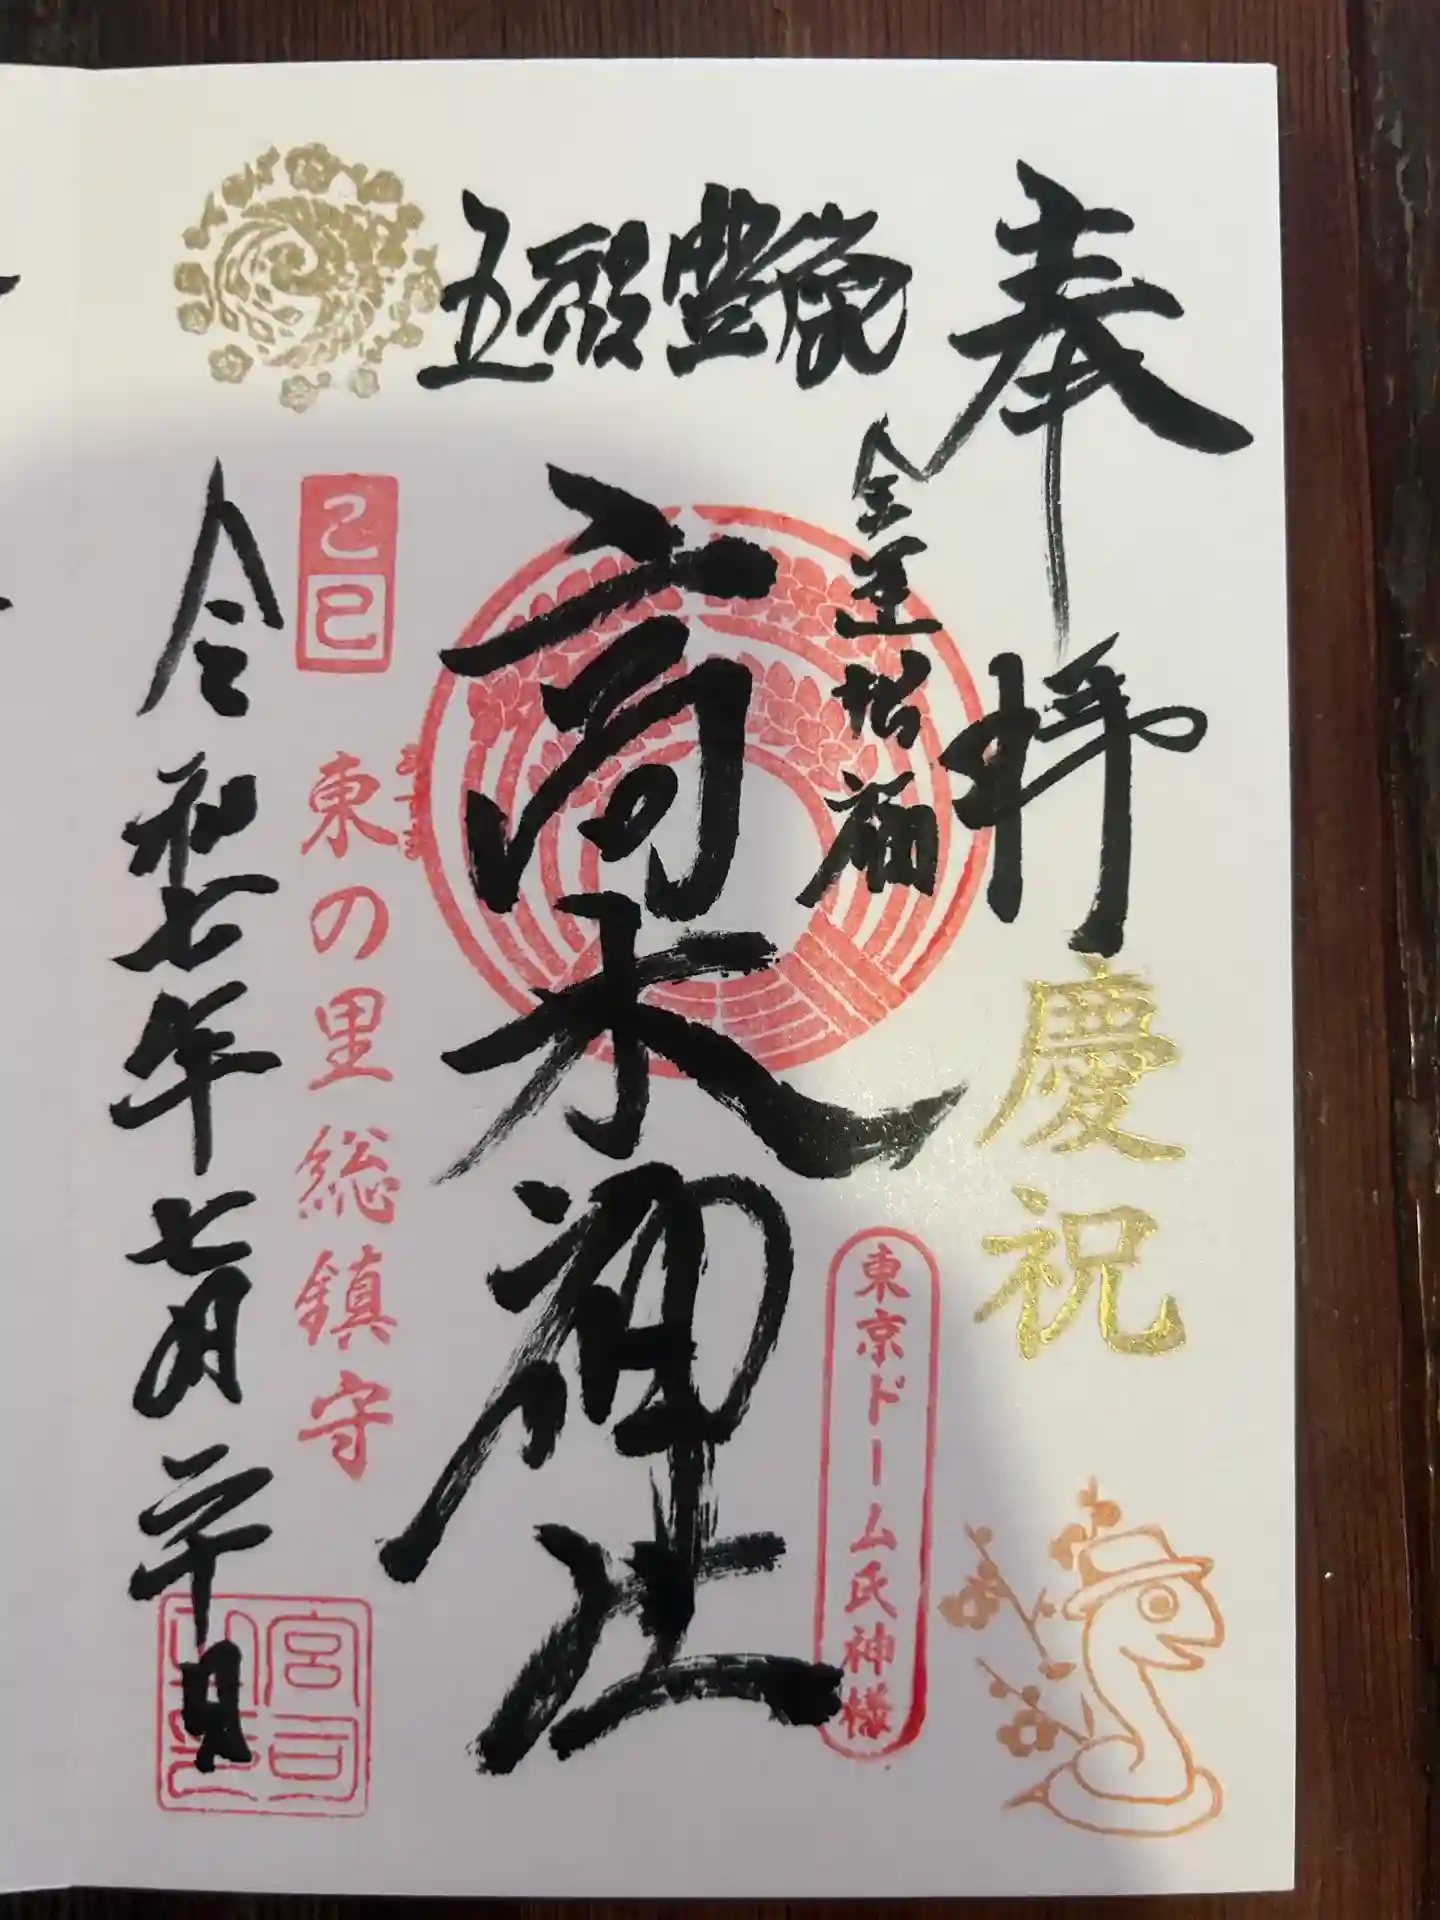 奉拝
慶祝
五穀豊穣
金運招福
東京ドーム氏神様
高木神社
己巳
東の里総鎮守
令和七年七月二十日
宮司之印